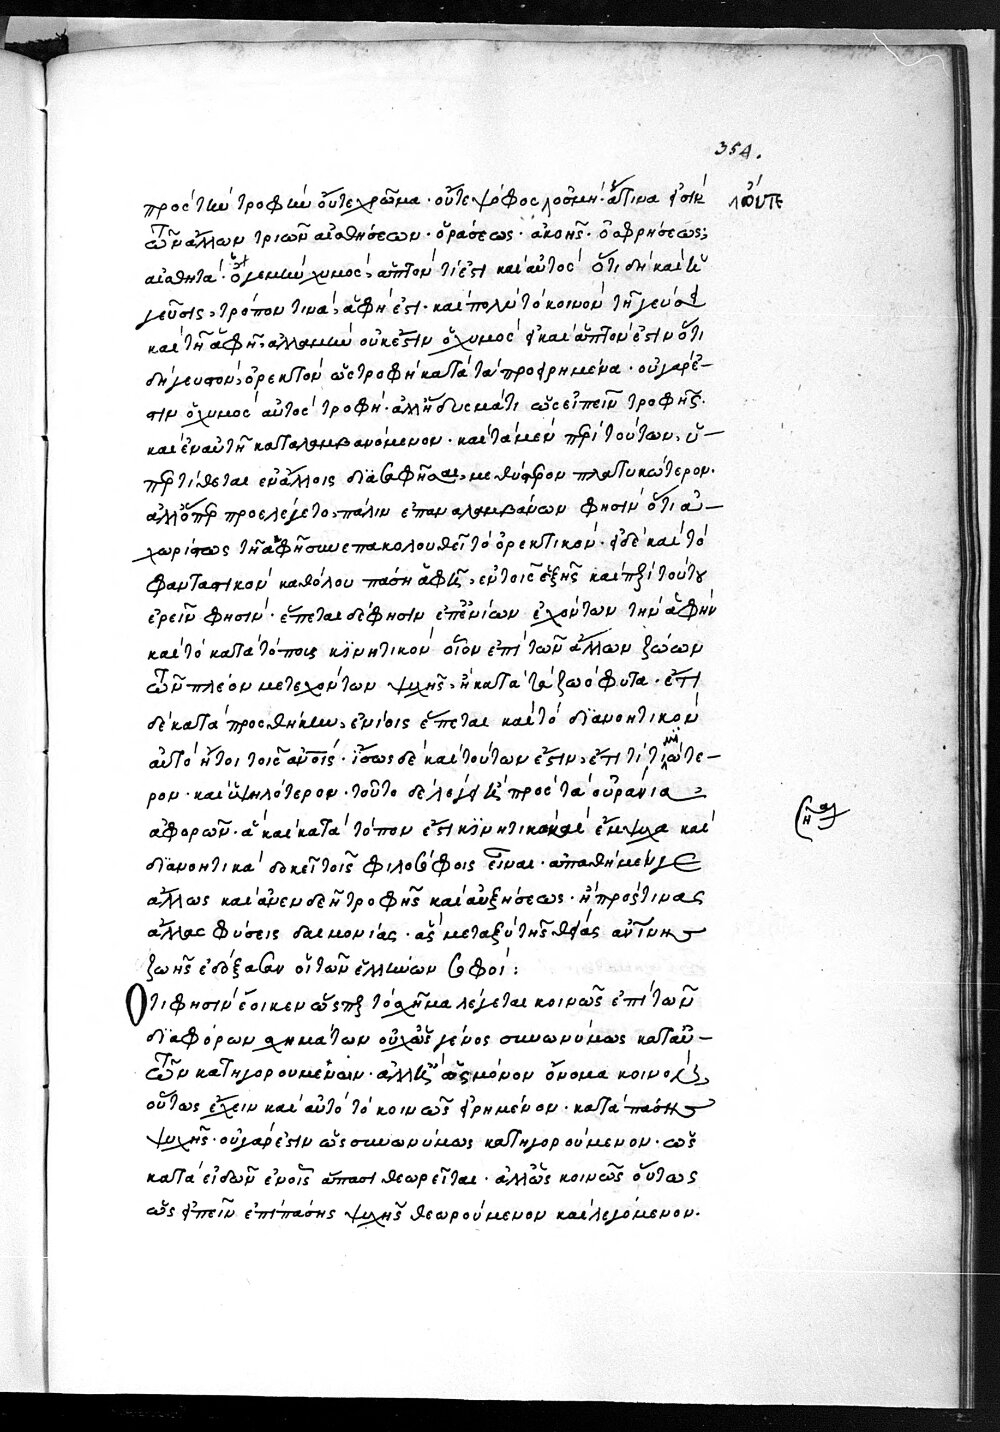 354.
πρὸς τὴν τροφὴν οὔτε χρῶμα· οὔτε ψόφος λοσμή· ἅτινα εἰσὶ
λοὔτε
τῶν ἄλλων τριῶν αἰσθήσεων· ὁράσεως· ἀκοῆς· ὀσφρήσεως;
αἰσθητά· ὅτι ὁ γεμὴν χυμὸς, ἁπτόν τί ἐστι καὶ αὐτὸς ὅτι δὴ καὶ ἡ
γεῦσις, τρόπον τινὰ, ἁφή ἐστι· καὶ πολὺ τὸ κοινὸν τῇ γεύσει
καὶ τῇ ἁφῇ, ἀλλαμὴν οὐκ ἔστιν ὁ χυμὸς εἰ καὶ ἁπτόν ἐστιν ὅτι
δὴ γευστὸν, ὀρεκτὸν ὡς τροφὴ κατὰ τὰ προειρημένα· οὐ γάρ ἐ-
στιν ὁ χυμὸς αὐτὸς τροφή· ἀλλ' ἥδυσμά τι ὡς εἰπεῖν τροφῆς·
καὶ ἐν αὐτῇ καταλαμβανόμενον· καὶ τὰ μὲν περὶ τούτων, ὑ-
περτίθεται ἐν ἄλλοις διασαφῆσαι, μεθύστερον πλατυκώτερον·
ἀλλ' ὅπερ προελέγετο, πάλιν ἐπαναλαμβάνων φησὶν ὅτι ἀ-
χωρίστως τῇ ἁφῇ συνεπακολουθεῖ τὸ ὀρεκτικόν· εἰ δὲ καὶ τὸ
φανταστικὸν καθόλου πάσῃ ἁφῇ, ἐν τοῖς ἑξῆς καὶ περὶ τούτου
ἐρεῖν φησίν· ἕπεται δέ φησιν ἐπ' ἐνίων ἐχόντων τὴν ἁφὴν
καὶ τὸ κατὰ τόπους κινητικὸν οἷον ἐπὶ τῶν ἄλλων ζώων
τῶν πλέον μετεχόντων ψυχῆς, ἢ κατὰ τὰ ζωόφυτα· ἔτι
δὲ κατὰ προσθήκην, ἐνίοις ἕπεται καὶ τὸ διανοητικὸν
αὐτὸ ἤτοι τοῖς ἀνοις· ἴσως δὲ καὶ τούτων ἐστὶν, ἔτι τὶ τιμιώτε-
ρον· καὶ ὑψηλότερον· τοῦτο δὲ λέγει πρὸς τὰ οὐράνια
ἀφορῶν· ἃ καὶ κατὰ τόπον ἐστὶ κινητικὰ καὶ ἔμψυχα καὶ
διανοητικὰ δοκεῖ τοῖς φιλοσόφοις εἶναι· ἀπαθῆ μέν γε
ἄλλως καὶ ἀνενδεῆ τροφῆς καὶ αὐξήσεως· ἢ πρός τινας
ἄλλας φύσεις δαιμονίας· ἃς μεταξὺ τῆς θείας
ζωῆς ἐδόξασαν οἱ τῶν ἑλλήνων σοφοί:
Ὅτι φησὶν ἔοικεν ὥσπερ τὸ σχῆμα λέγεται κοινῶς ἐπὶ τῶν
διαφόρων σχημάτων οὐχ ὡς γένος συνωνύμως κατ' αὐ-
τῶν κατηγορουμένων· ἀλλ' ἢ ὡς μόνον ὄνομα κοινὸν,
οὕτως ἔχειν καὶ αὐτὸ τὸ κοινῶς εἰρημένον· κατὰ πάσης
ψυχῆς· οὐ γάρ ἐστιν ὡς συνωνύμως κατηγορούμενον· ὡς
κατὰ εἰδῶν ἐνοῖς ἅπασι θεωρεῖται· ἀλλ' ὡς κοινῶς οὕτως
ὡς εἰπεῖν ἐπὶ πάσης ψυχῆς θεωρούμενον καὶ λεγόμενον·